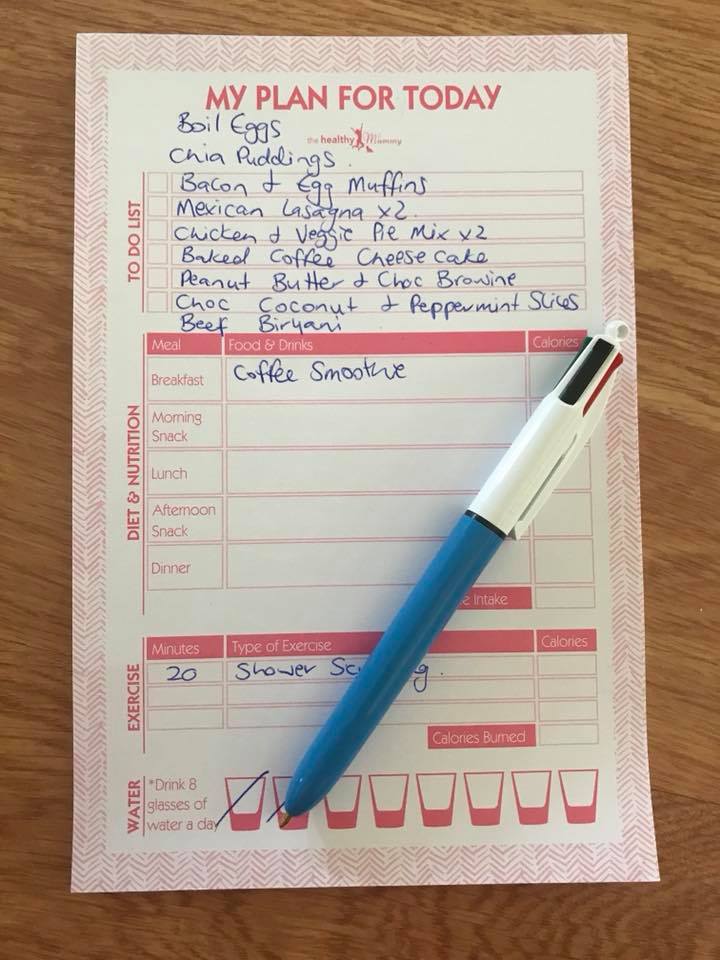 MY PLAN FOR TODAY
Boil Eggs
the healthy Mummy
Chia Puddings.
TO DO LIST
Bacon & Egg Muffins
Mexican Lasagna x2.
Chicken & Veggie Pie Mix x2
Baked Coffee Cheese cake
Peanut Butter & Choc Browine
Choc Coconut & Peppermint Slices
Beef Biryani
DIET & NUTRITION
Meal Food & Drinks Calories
Breakfast Coffee Smoothie
Morning
Snack
Lunch
Afternoon
Snack
Dinner
Intake
EXERCISE
Minutes Type of Exercise Calories
20 Shower
Calories Burned
WATER
*Drink 8
glasses of
water a day